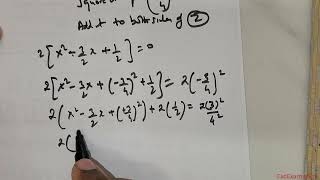 Square
Add it to both sides of ②
2[x² - 3/2 x + 1/2] = 0
2[x² - 3/2 x + (-3/4)² + 1/2] = 2(-3/4)²
2(x² - 3/2 x + (-3/4)²) + 2(1/2) = 2(3)²/4²
2(